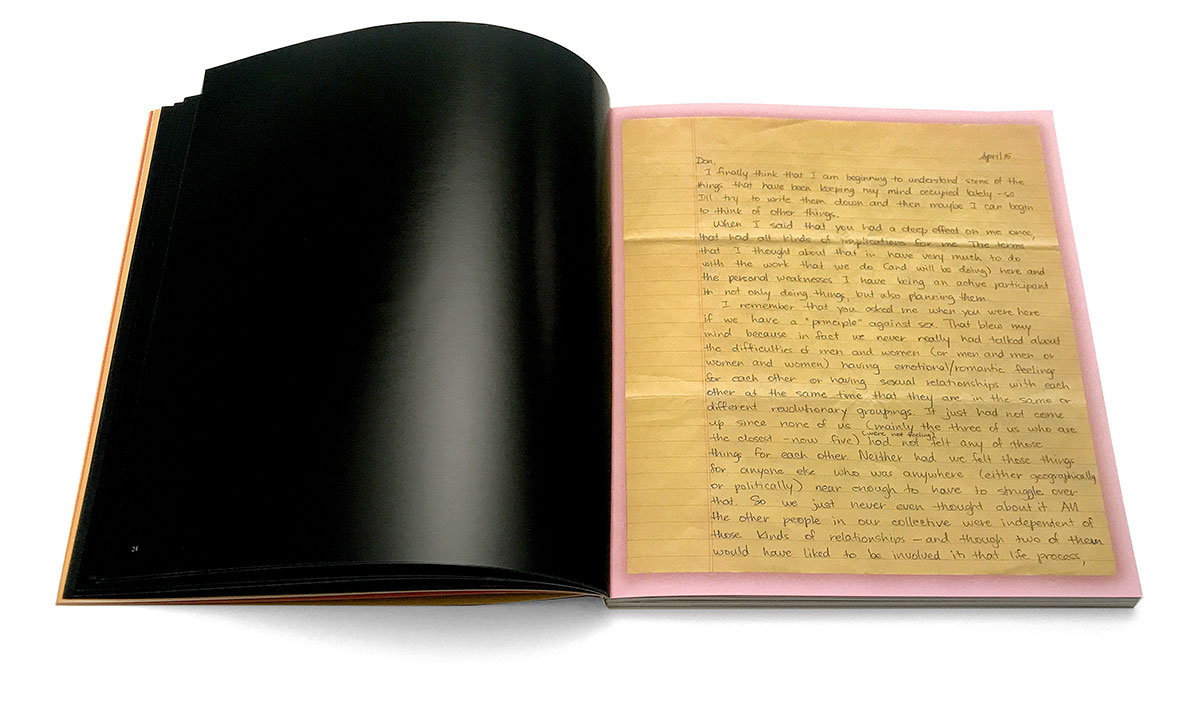 April 15
Don,
I finally think that I am beginning to understand some of the
things that have been keeping my mind occupied lately - so
I'll try to write them down and then maybe I can begin
to think of other things.
When I said that you had a deep effect on me once,
that had all kinds of implications for me. The terms
that I thought about that in have very much to do
with the work that we do (and will be doing) here and
the personal weaknesses I have being an active participant
in not only doing things, but also planning them.
I remember that you asked me when you were here
if we have a "principle" against sex. That blew my
mind because in fact we never really had talked about
the difficulties of men and women (or men and men or
women and women) having emotional/romantic feelings
for each other or having sexual relationships with each
other at the same time that they are in the same or
different revolutionary groupings. It just had not come
up since none of us (mainly the three of us who are
(were not feeling)
the closest - now five) had not felt any of those
things for each other. Neither had we felt those things
for anyone else who was anywhere (either geographically
or politically) near enough to have to struggle over
that. So we just never even thought about it. All
the other people in our collective were independent of
those kinds of relationships - and though two of them
would have liked to be involved in that life process,